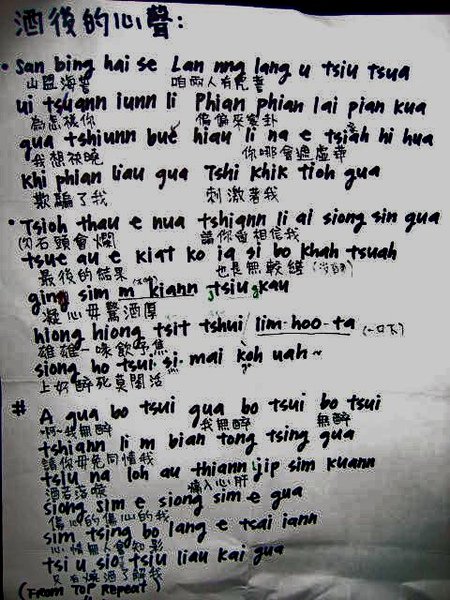 酒後的心聲:
• San bing hai se Lan nng lang u tsiu tsua
山盟海誓 咱兩人有咒誓
ui tsuann iunn li Phian phian lai pian kua
為怎樣你 偏偏來變卦
gua tshiunn bue hiau li na e tsiah hi hua
我想袂曉 你哪會遮虛華
khi phian liau gua Tshi khik tioh gua
欺騙了我 刺激著我
• Tsioh thau e nua tshiann li ai siong sin gua
石頭會爛 請你愛相信我
tsue au e kiat ko ia si bo khah tsuah
最後的結果 也是無較縒
ging sim m kiann tsiu kau
凝心毋驚酒厚
hiong hiong tsit tshui lim-hoo-ta (一口下)
雄雄一喙飲予焦
siong ho tsui si mai koh uah~
上好醉死莫閣活
# A gua bo tsui gua bo tsui bo tsui
啊~我無醉 我無醉 無醉
tshiann li m bian tong tsing gua
請你毋免同情我
tsiu na loh au thiann jip sim kuann
酒若落喉 痛入心肝
siong sim e siong sim e gua
傷心的傷心的我
sim tsing bo lang e tsai iann
心情無人會知影
tsi u sio tsiu liau kai gua
只有燒酒了解我
(FROM TOP REPEAT)